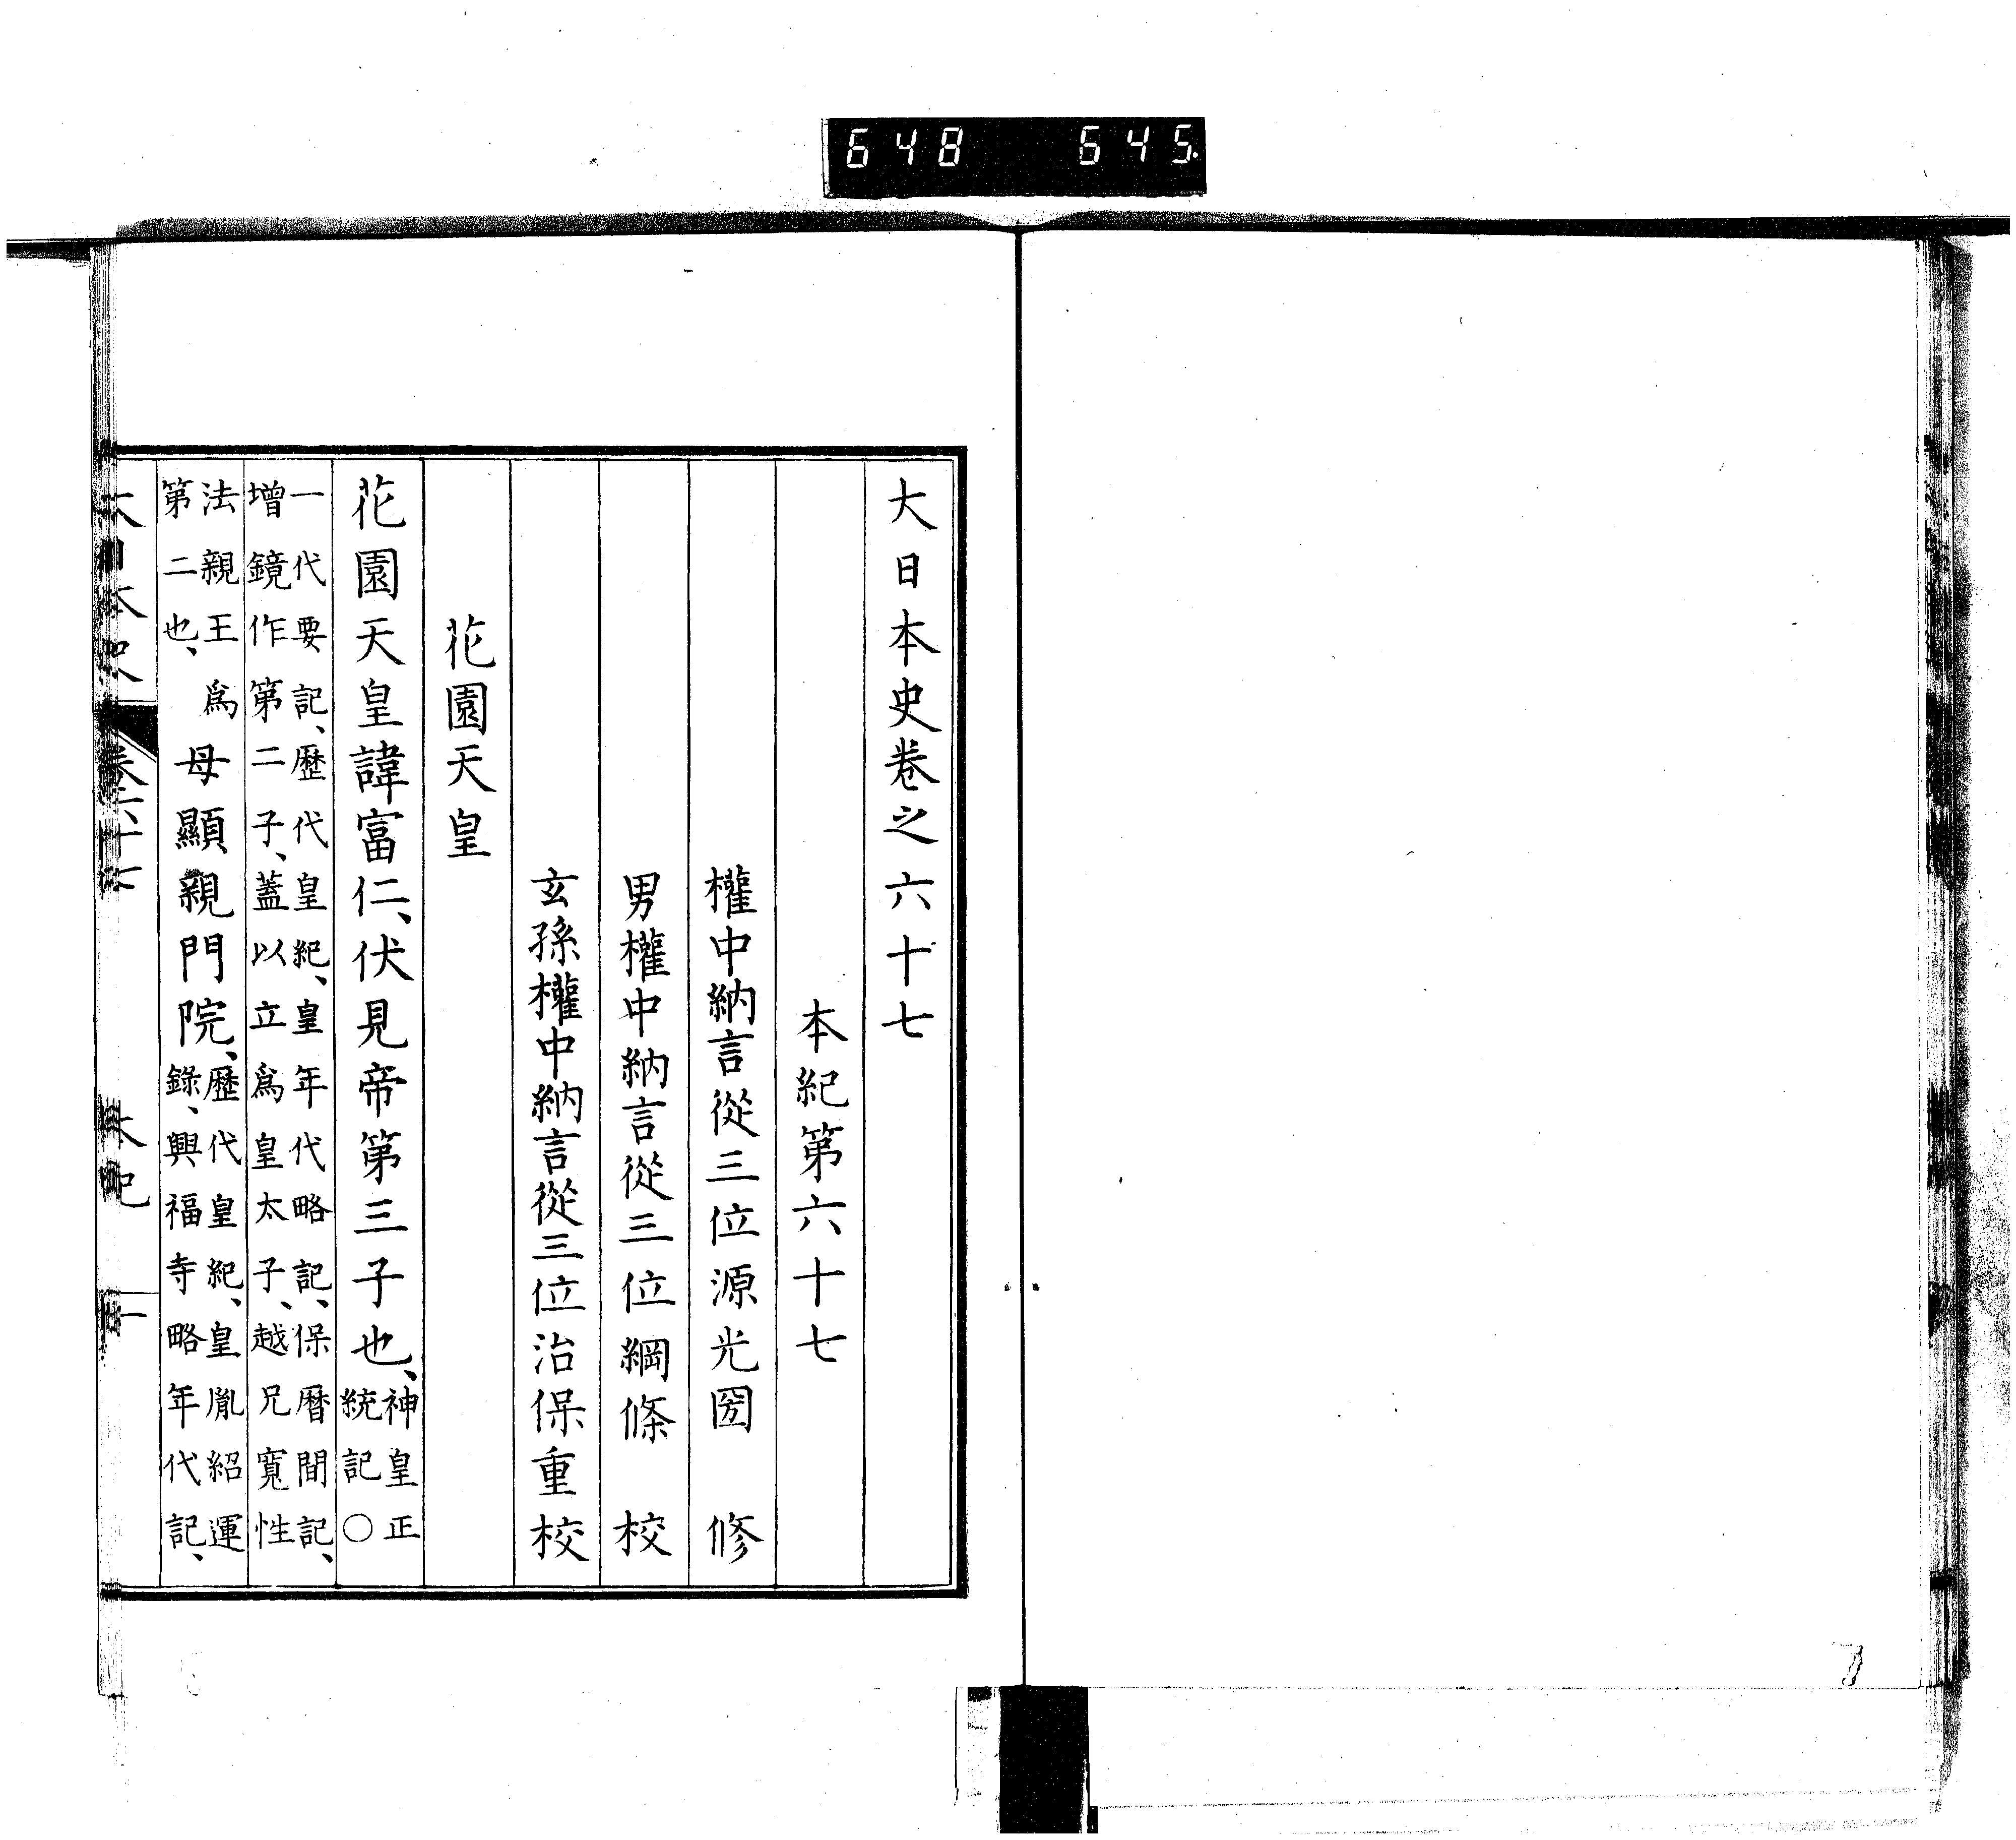 648 645
大日本史卷之六十七
本紀第六十七
權中納言從三位源光圀 修
男權中納言從三位綱條 校
玄孫權中納言從三位治保重校
花園天皇
花園天皇諱富仁、伏見帝第三子也、神皇正
統記○
一代要記、歷代皇紀、皇年代略記、保曆間記、
增鏡作第二子、蓋以立爲皇太子、越兄寬性
法親王爲
第二也、
母顯親門院、歷代皇紀、皇胤紹運
錄、興福寺略年代記、
大日本史 卷六十七 本紀 一